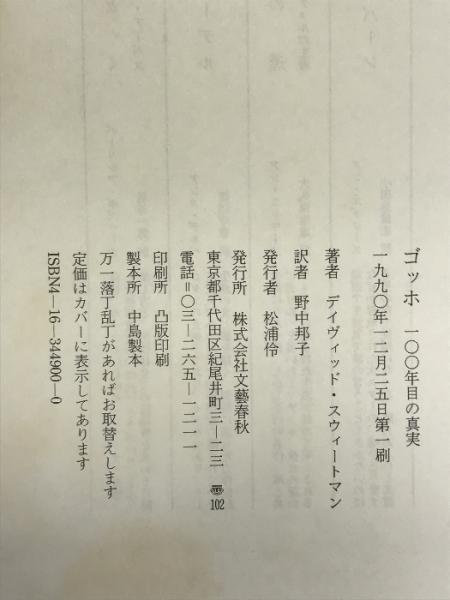 ゴッホ 一〇〇年目の真実
一九九〇年一二月二五日第一刷
著者 デイヴィッド・スウィートマン
訳者 野中邦子
発行者 松浦伶
発行所 株式会社文藝春秋
東京都千代田区紀尾井町三―二三 〒102
電話=〇三―二六五―一二一一
印刷所 凸版印刷
製本所 中島製本
万一落丁乱丁があればお取替えします
定価はカバーに表示してあります
ISBN4―16―344900―0